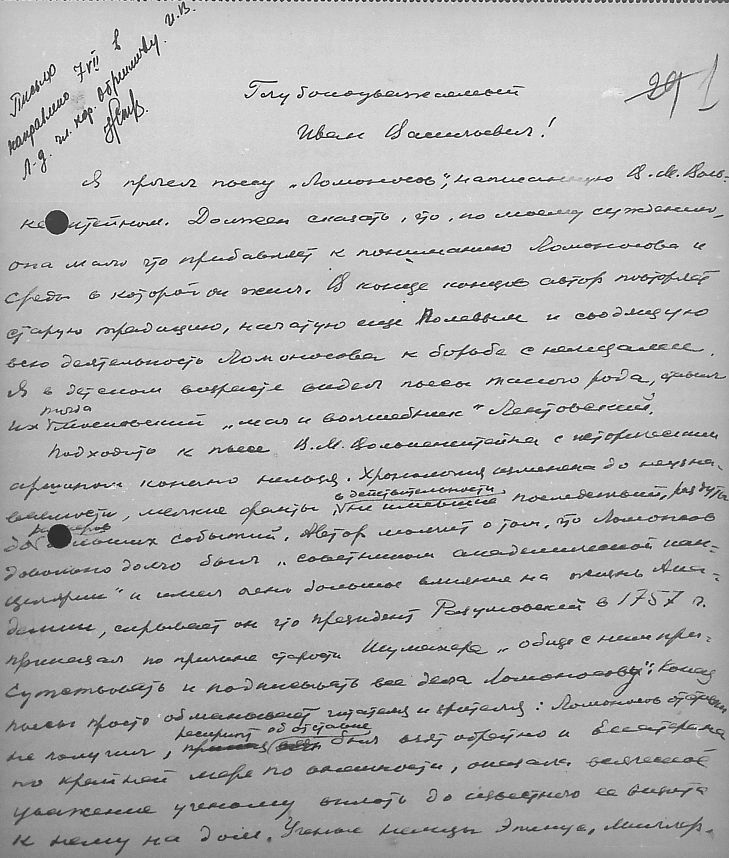 Письмо
направлено 7 VII в
Л-д. гл. кор. Обреимову. И.В.
29 1
Глубокоуважаемый
Иван Васильевич!
Я прочел пьесу „Ломоносов", написанную В. М. Воль-
кенштейном. Должен сказать, что, по моему суждению,
она мало что прибавляет к пониманию Ломоносова и
среды в которой он жил. В конце концов автор повторяет
старую традицию, начатую еще Полевым и сводящую
всю деятельность Ломоносова к борьбе с немцами.
Я в детском возрасте видел пьесы такого рода, ставил
их тогда московский „маг и волшебник" Лентовский.
Подходить к пьесе В. М. Волькенштейна с историческим
аршином конечно нельзя. Хронология изменена до неузна-
ваемости, мелкие факты не имевшие в действительности последствий, раздуты
до размеров больших событий. Автор молчит о том, что Ломоносов
довольно долго был „советником академической кан-
целярии" и имел очень большое влияние на жизнь Ака-
демии, скрывает он что президент Разумовский в 1757 г.
приказал по причине старости Шумахера „обще с ним при-
сутствовать и подписывать все дела Ломоносову". Конец
пьесы просто обманывает читателя и зрителя: Ломоносов отставки
не получил, рескрипт об отставке был взят обратно и Екатерина
по крайней мере по внешности, оказала всяческое
уважение ученому вплоть до известного ее визита
к нему на дом. Ученые немцы Эпинус, Миллер.